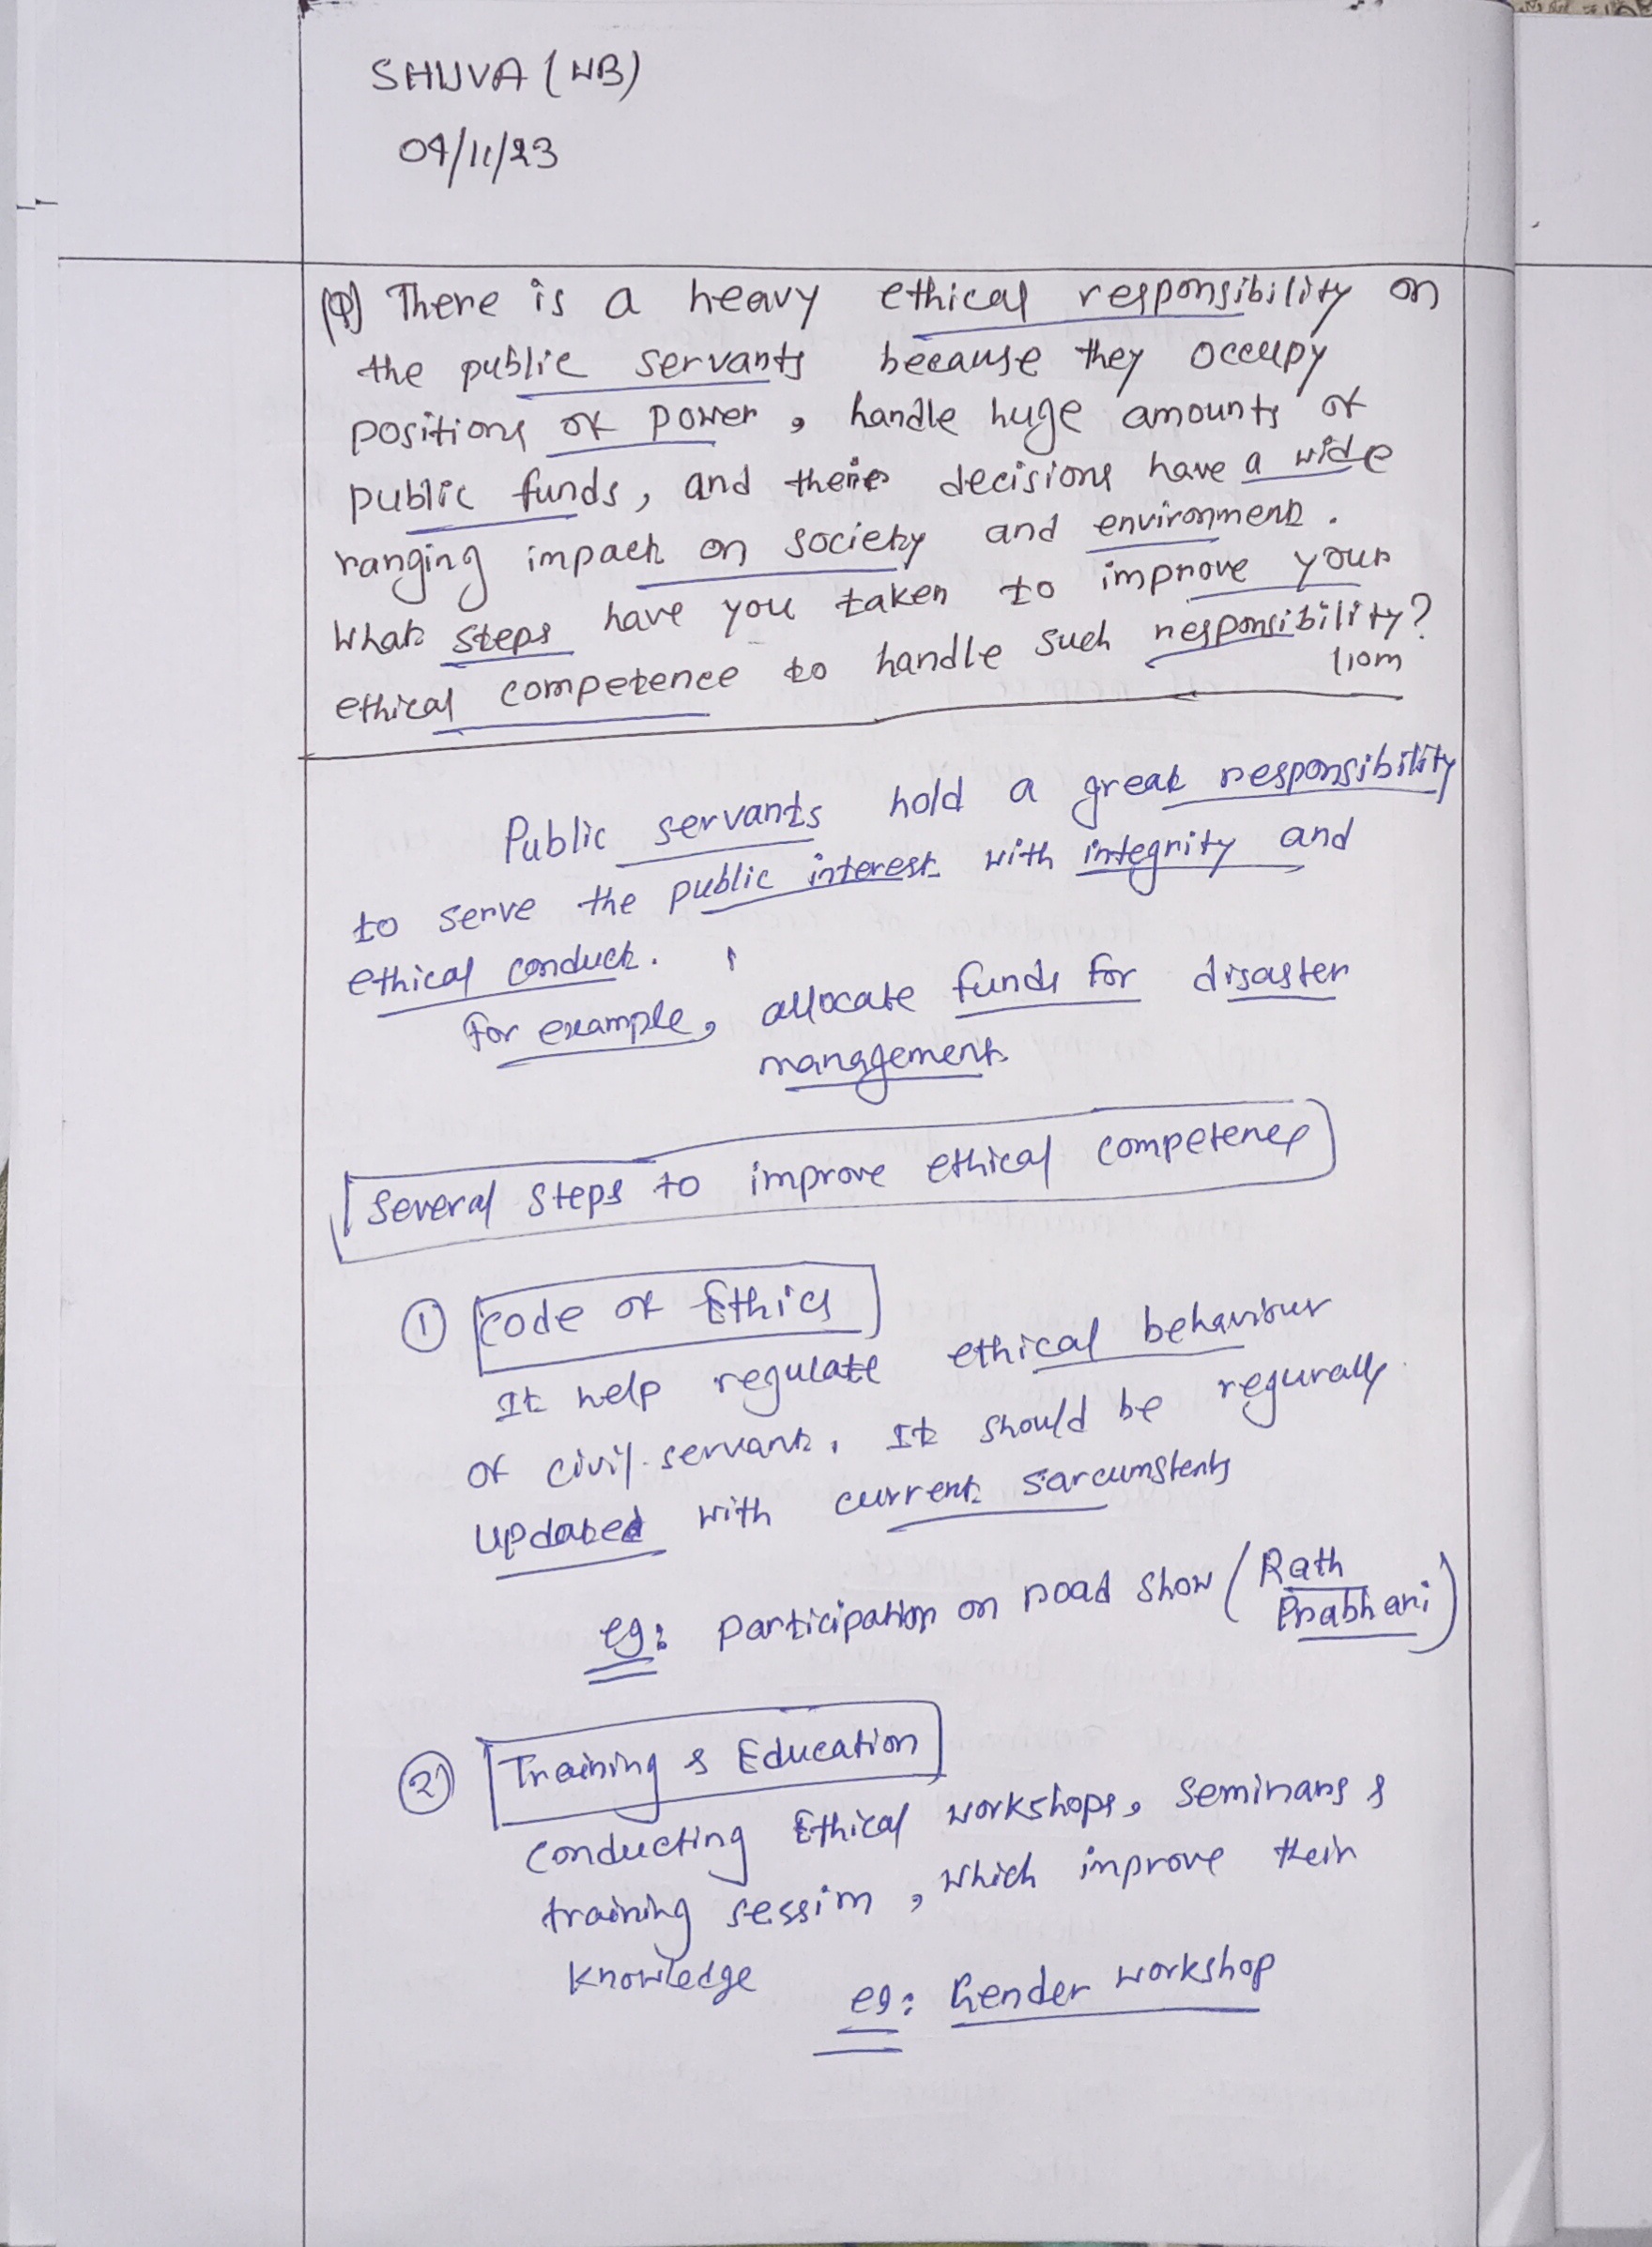 SHUVA (WB)
04/11/23
(Q) There is a heavy ethical responsibility on
the public servants because they occupy
positions of power, handle huge amounts of
public funds, and their decisions have a wide
ranging impact on society and environment.
What steps have you taken to improve your
ethical competence to handle such responsibility?
110m
Public servants hold a great responsibility
to serve the public interest with integrity and
ethical conduct.
for example, allocate funds for disaster
management
Several steps to improve ethical competence
① Code of Ethics
It help regulate ethical behaviour
of civil servant. It should be regurally
updated with current sarcumstents
eg: participation on road show (Rath
Prabhari)
② Training & Education
Conducting Ethical workshops, seminars &
training session, which improve their
knowledge
eg: Gender workshop